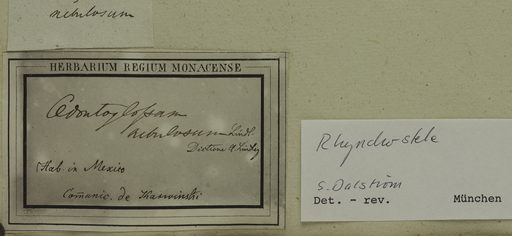 nebulosum
HERBARIUM REGIUM MONACENSE
Odontoglossum
nebulosum Lindl.
Hab. in Mexico
Comunic. de Karwinski
S. Dalström
Det. - rev. München